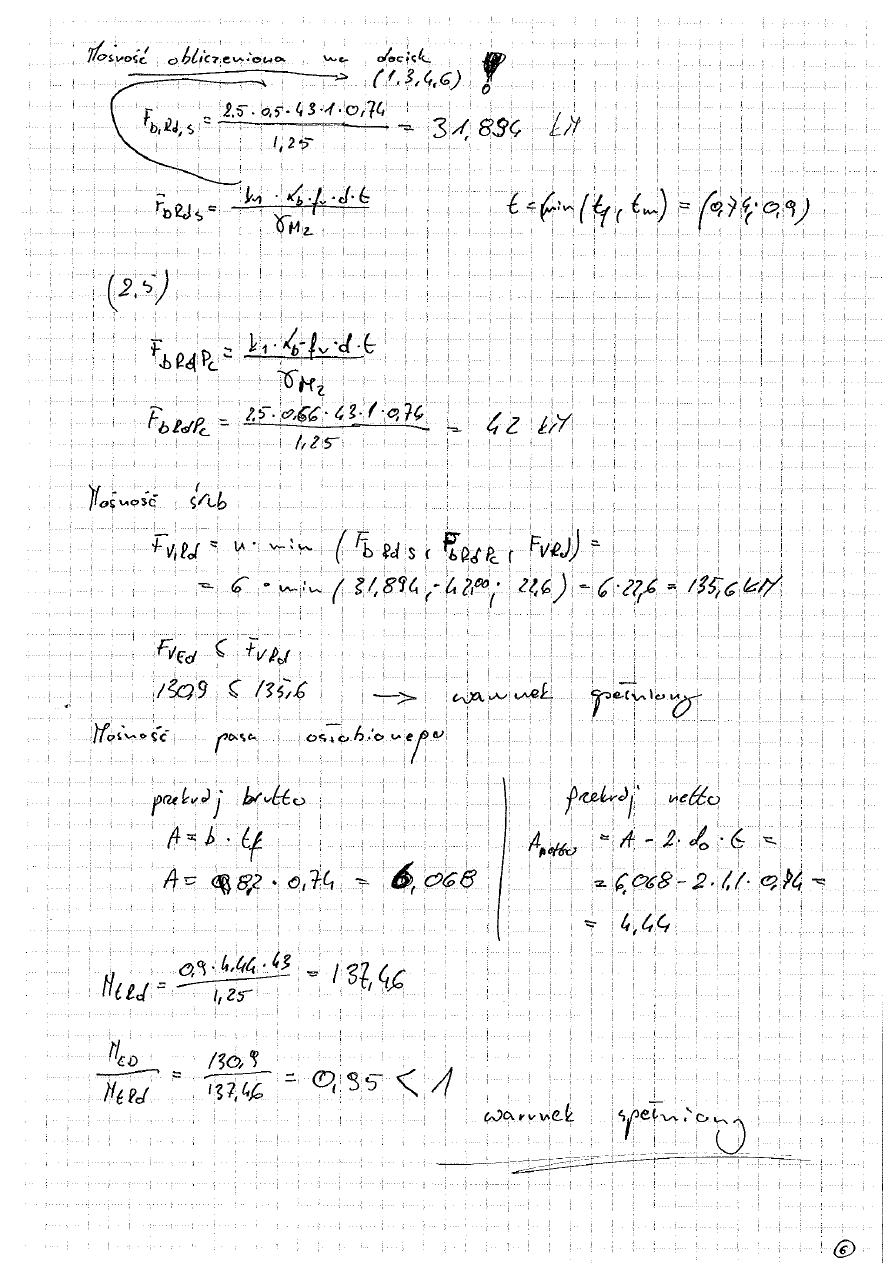 Nośność obliczeniowa na docisk !
(1,3,4,6)
F_b,Rd,s = (2,5 · 0,5 · 43 · 1 · 0,74) / 1,25 = 31,894 kN
F_bRds = (k1 · αb · fu · d · t) / γM2
t = min(tf, tm) = (0,74; 0,9)
(2,5)
F_bRdPc = (k1 · αb · fu · d · t) / γM2
F_bRdPc = (2,5 · 0,66 · 43 · 1 · 0,74) / 1,25 = 42 kN
Nośność śrub
F_V,Rd = n · min (F_bRds, F_bRdPc, F_VRd) =
= 6 · min (31,894; 42,00; 22,6) = 6·22,6 = 135,6 kN
F_VEd ≤ F_VRd
130,9 ≤ 135,6 → warunek spełniony
Nośność pasa osłabionego
przekrój brutto
A = b · tf
A = 8,2 · 0,74 = 6,068
Przekrój netto
A_netto = A - 2 · d0 · t =
= 6,068 - 2 · 1,1 · 0,74 =
= 4,44
N_tRd = (0,9 · 4,44 · 43) / 1,25 = 137,46
N_ED / N_tRd = 130,9 / 137,46 = 0,95 < 1
warunek spełniony
6